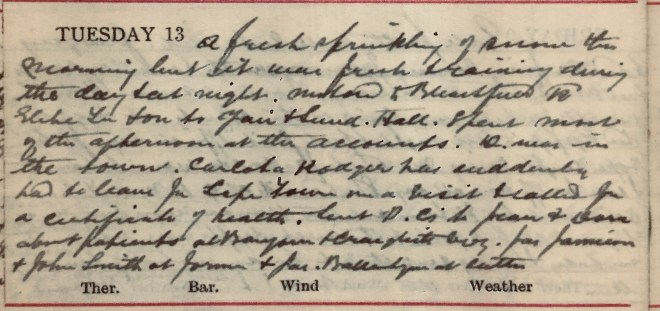 TUESDAY 13 A fresh sprinkling of snow this
morning but it was fresh & raining during
the day & at night. Motored to
to Fair & Lund. Hall. Spent most
of the afternoon at the accounts. D. was in
the town. Carlota Rodger has suddenly
had to leave for Cape Town on a visit & called for
a certificate of health. Sent D. to Jean &
about patients at & Craighith Jas Jamieson
& John Smith at former & Jas. Ballantyne at latter
Ther. Bar. Wind Weather